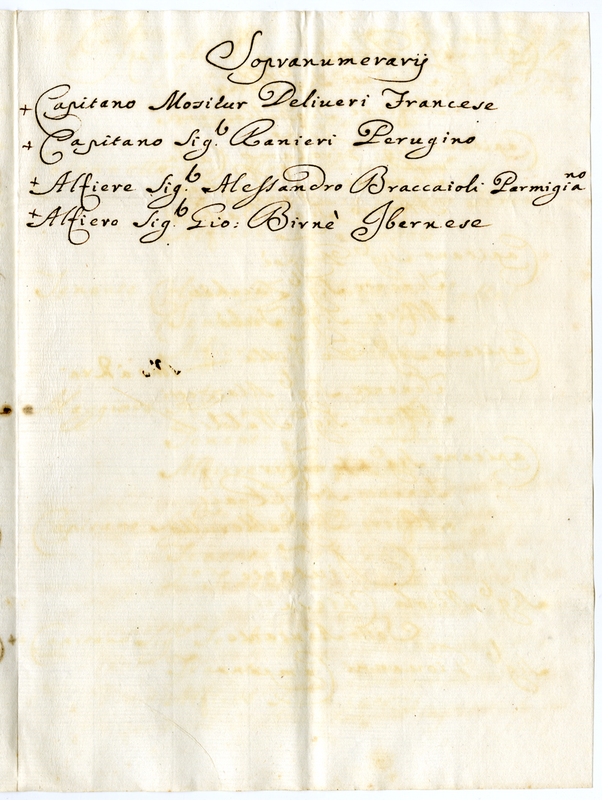 Sopranumerarij
+ Capitano Mosieur Deliveri Francese
+ Capitano Sig.r Ranieri Perugino
+ Alfiere Sig.r Alessandro Braccaioli Parmigiano
+ Alfiero Sig.r Gio: Birnè Ibernese